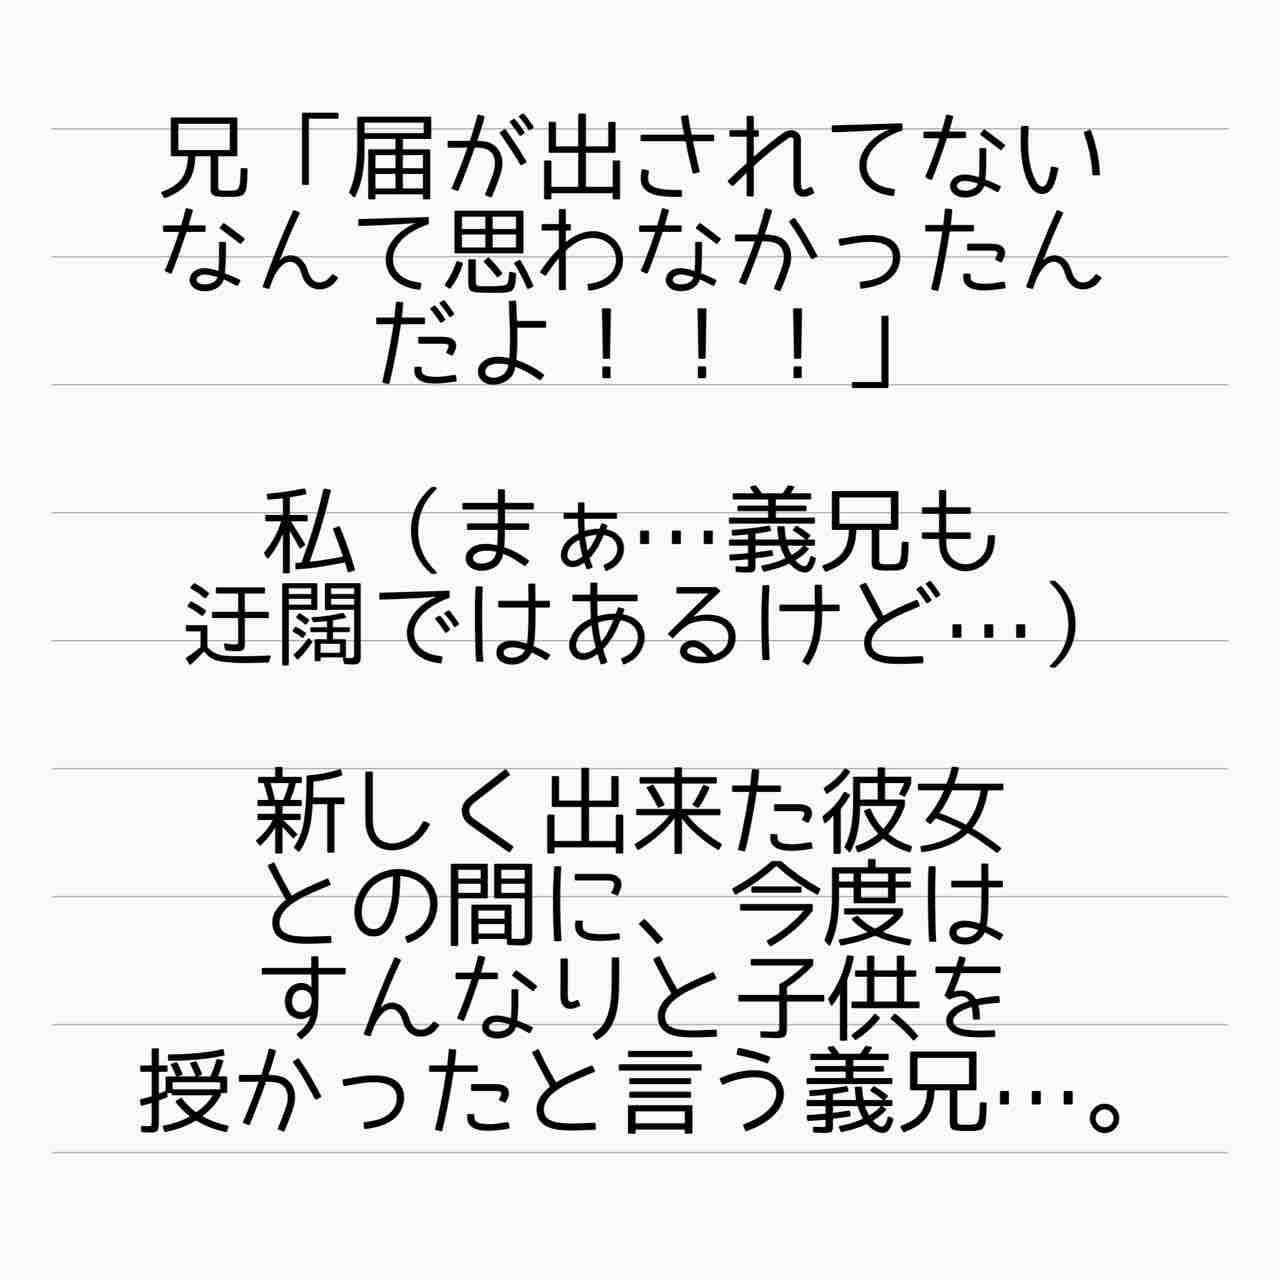 兄「届が出されてない
なんて思わなかったん
だよ！！！」
私（まぁ…義兄も
迂闊ではあるけど…）
新しく出来た彼女
との間に、今度は
すんなりと子供を
授かったと言う義兄…。